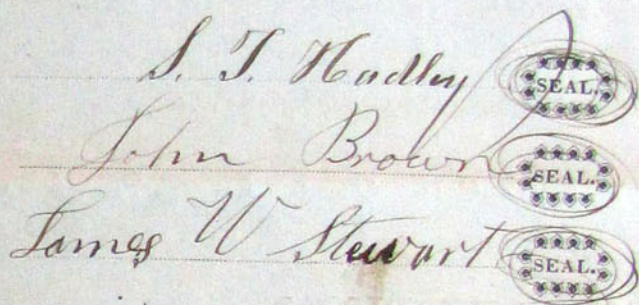 S. T. Hadley SEAL.
John Brown SEAL.
James W Stewart SEAL.